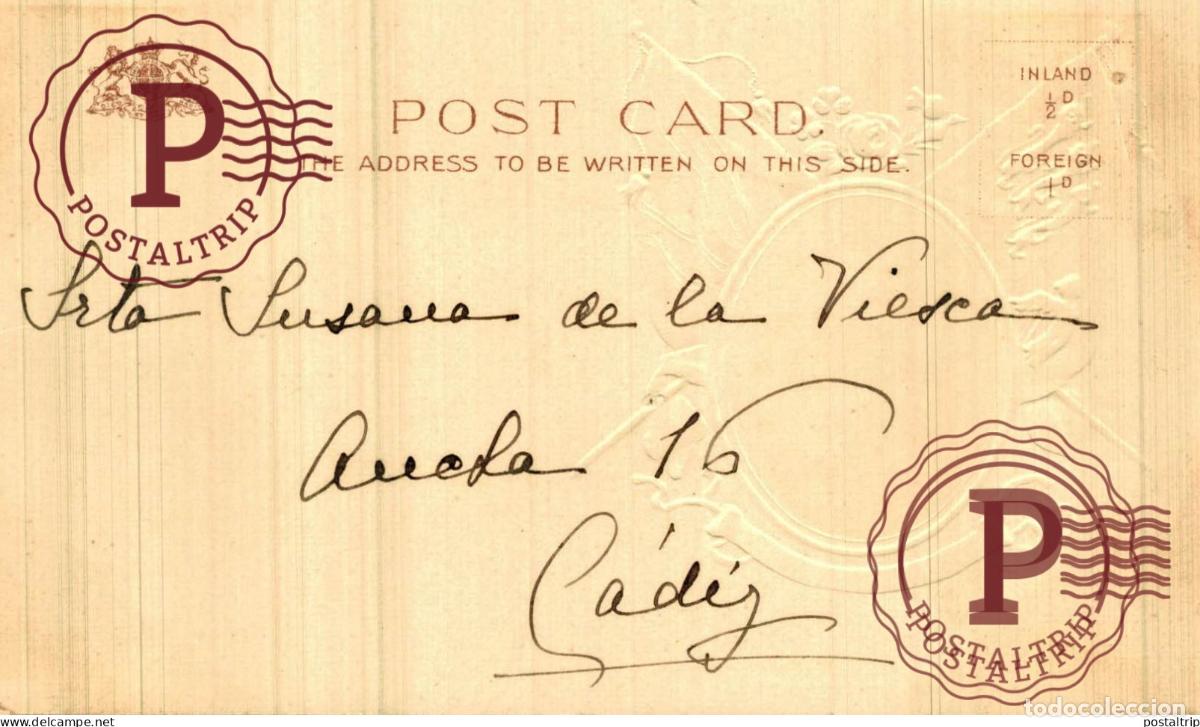 POST CARD.
THE ADDRESS TO BE WRITTEN ON THIS SIDE.
INLAND
½ D
FOREIGN
1 D
P
POSTALTRIP
Srta Susana de la Viesca
Ancha 16
Cádiz
P
POSTALTRIP
POSTALTRIP
todocoleccion
www.delcampe.net
postaltrip